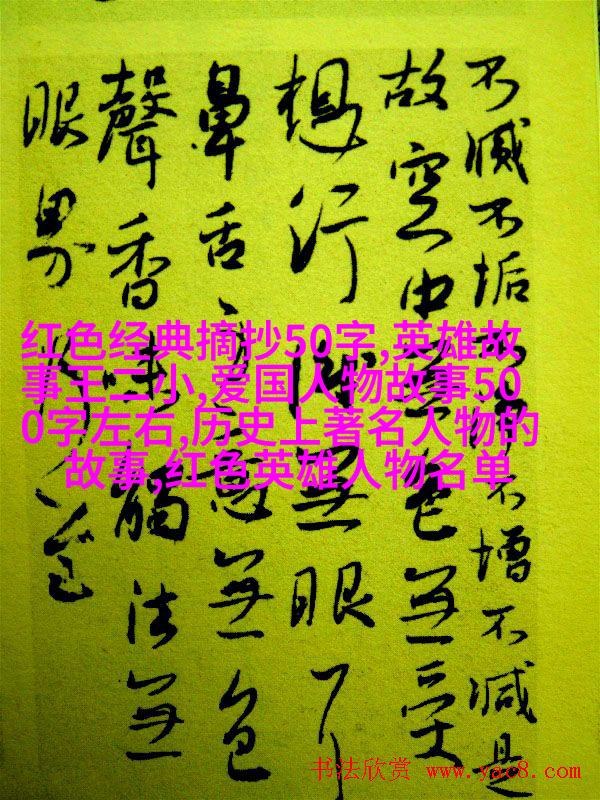 不滅不垢不不增不減是
故空中無色無受
想行識無眼耳
鼻舌身意無色
聲香味觸法無
眼界
红色经典摘抄50字,英雄故
事王二小,爱国人物故事50
0字左右,历史上著名人物的
故事,红色英雄人物名单
书法欣赏 www.yac8.com